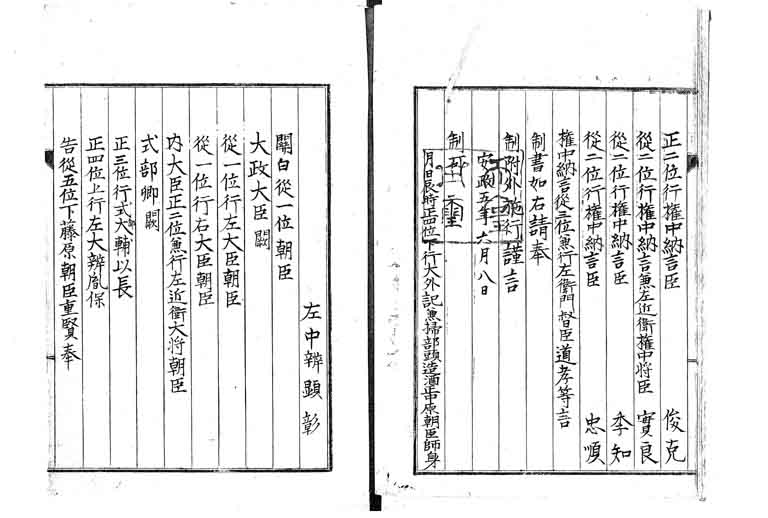 正二位行權中納言臣　俊克
從二位行權中納言兼左近衛權中將臣　實良
從二位行權中納言臣　季知
從二位行權中納言臣　忠順
權中納言從三位兼行左衛門督臣道孝等言
制書如右請奉
制附外施行謹言
安政五年六月八日
制可
月日辰時正四位下行大外記兼掃部頭造酒正中原朝臣師身
左中辨顯彰
關白從一位朝臣
大政大臣闕
從一位行左大臣朝臣
從一位行右大臣朝臣
内大臣正二位兼行左近衛大將朝臣
式部卿闕
正三位行式大輔以長
正四位上行左大辨胤保
告從五位下藤原朝臣重賢奉